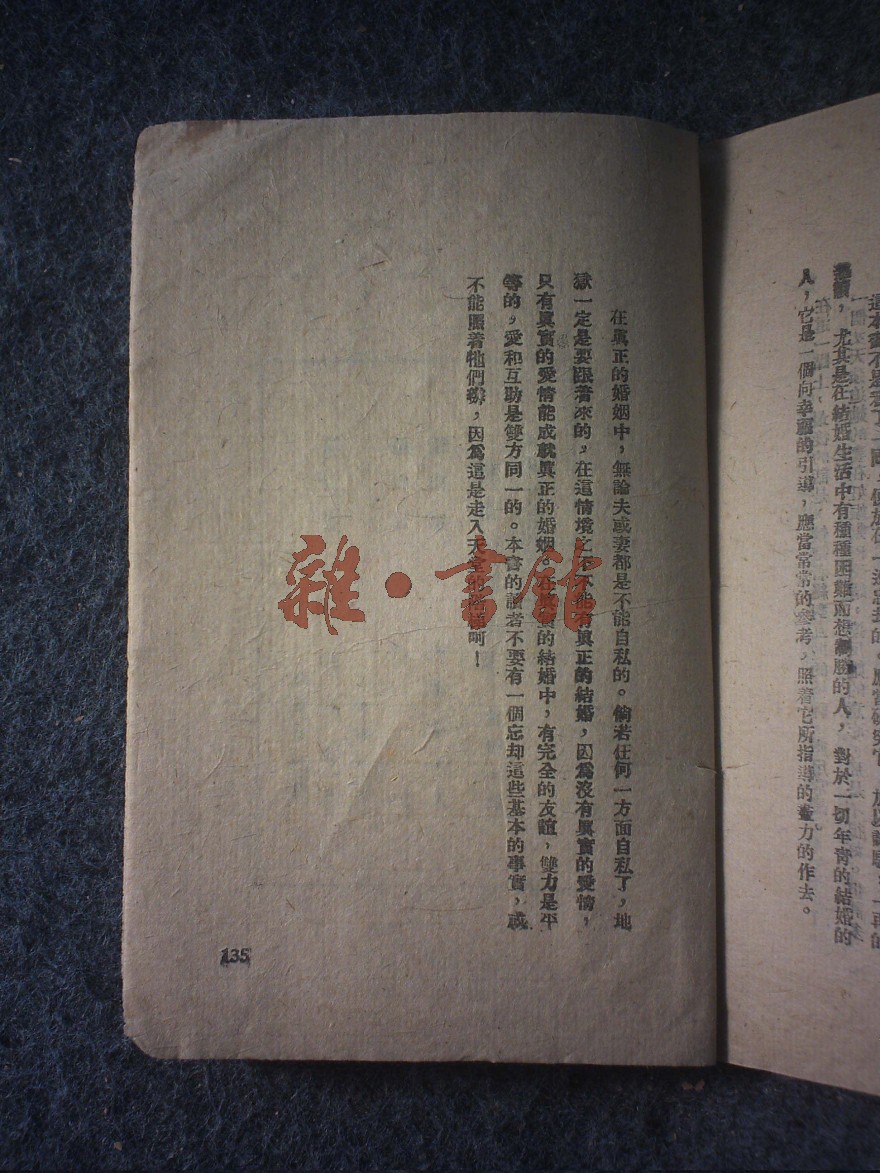 ，尤其是在結婚生活中有種種困難而想得勝的人，對於一切年青的結婚的
人，它是一個向幸福的引導，應當常常的參考，照着它所指導的盡力的作去。
在眞正的婚姻中，無論夫或妻都是不能自私的。倘若任何一方面自私了，地
獄一定是要跟着來的，在這情境之下不能有眞正的結婚，因爲沒有眞實的愛情，
只有眞實的愛情能成就眞正的婚姻。在眞實的結婚中，有完全的友誼，雙力是平
等的，愛和互助是雙方同一的。本書的讀者不要有一個忘却這些基本的事實，或
不能照着牠們辦，因爲這是走入天堂的階梯呵！
135
雜·書館